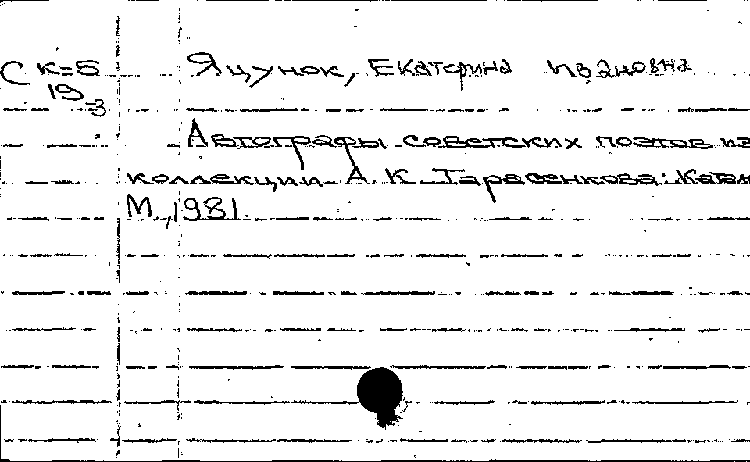 С К=5
19
3
Яцунок, Екатерина Ивановна
Автографы советских поэтов из
коллекции А. К. Тарасенкова: Катал
М., 1981.